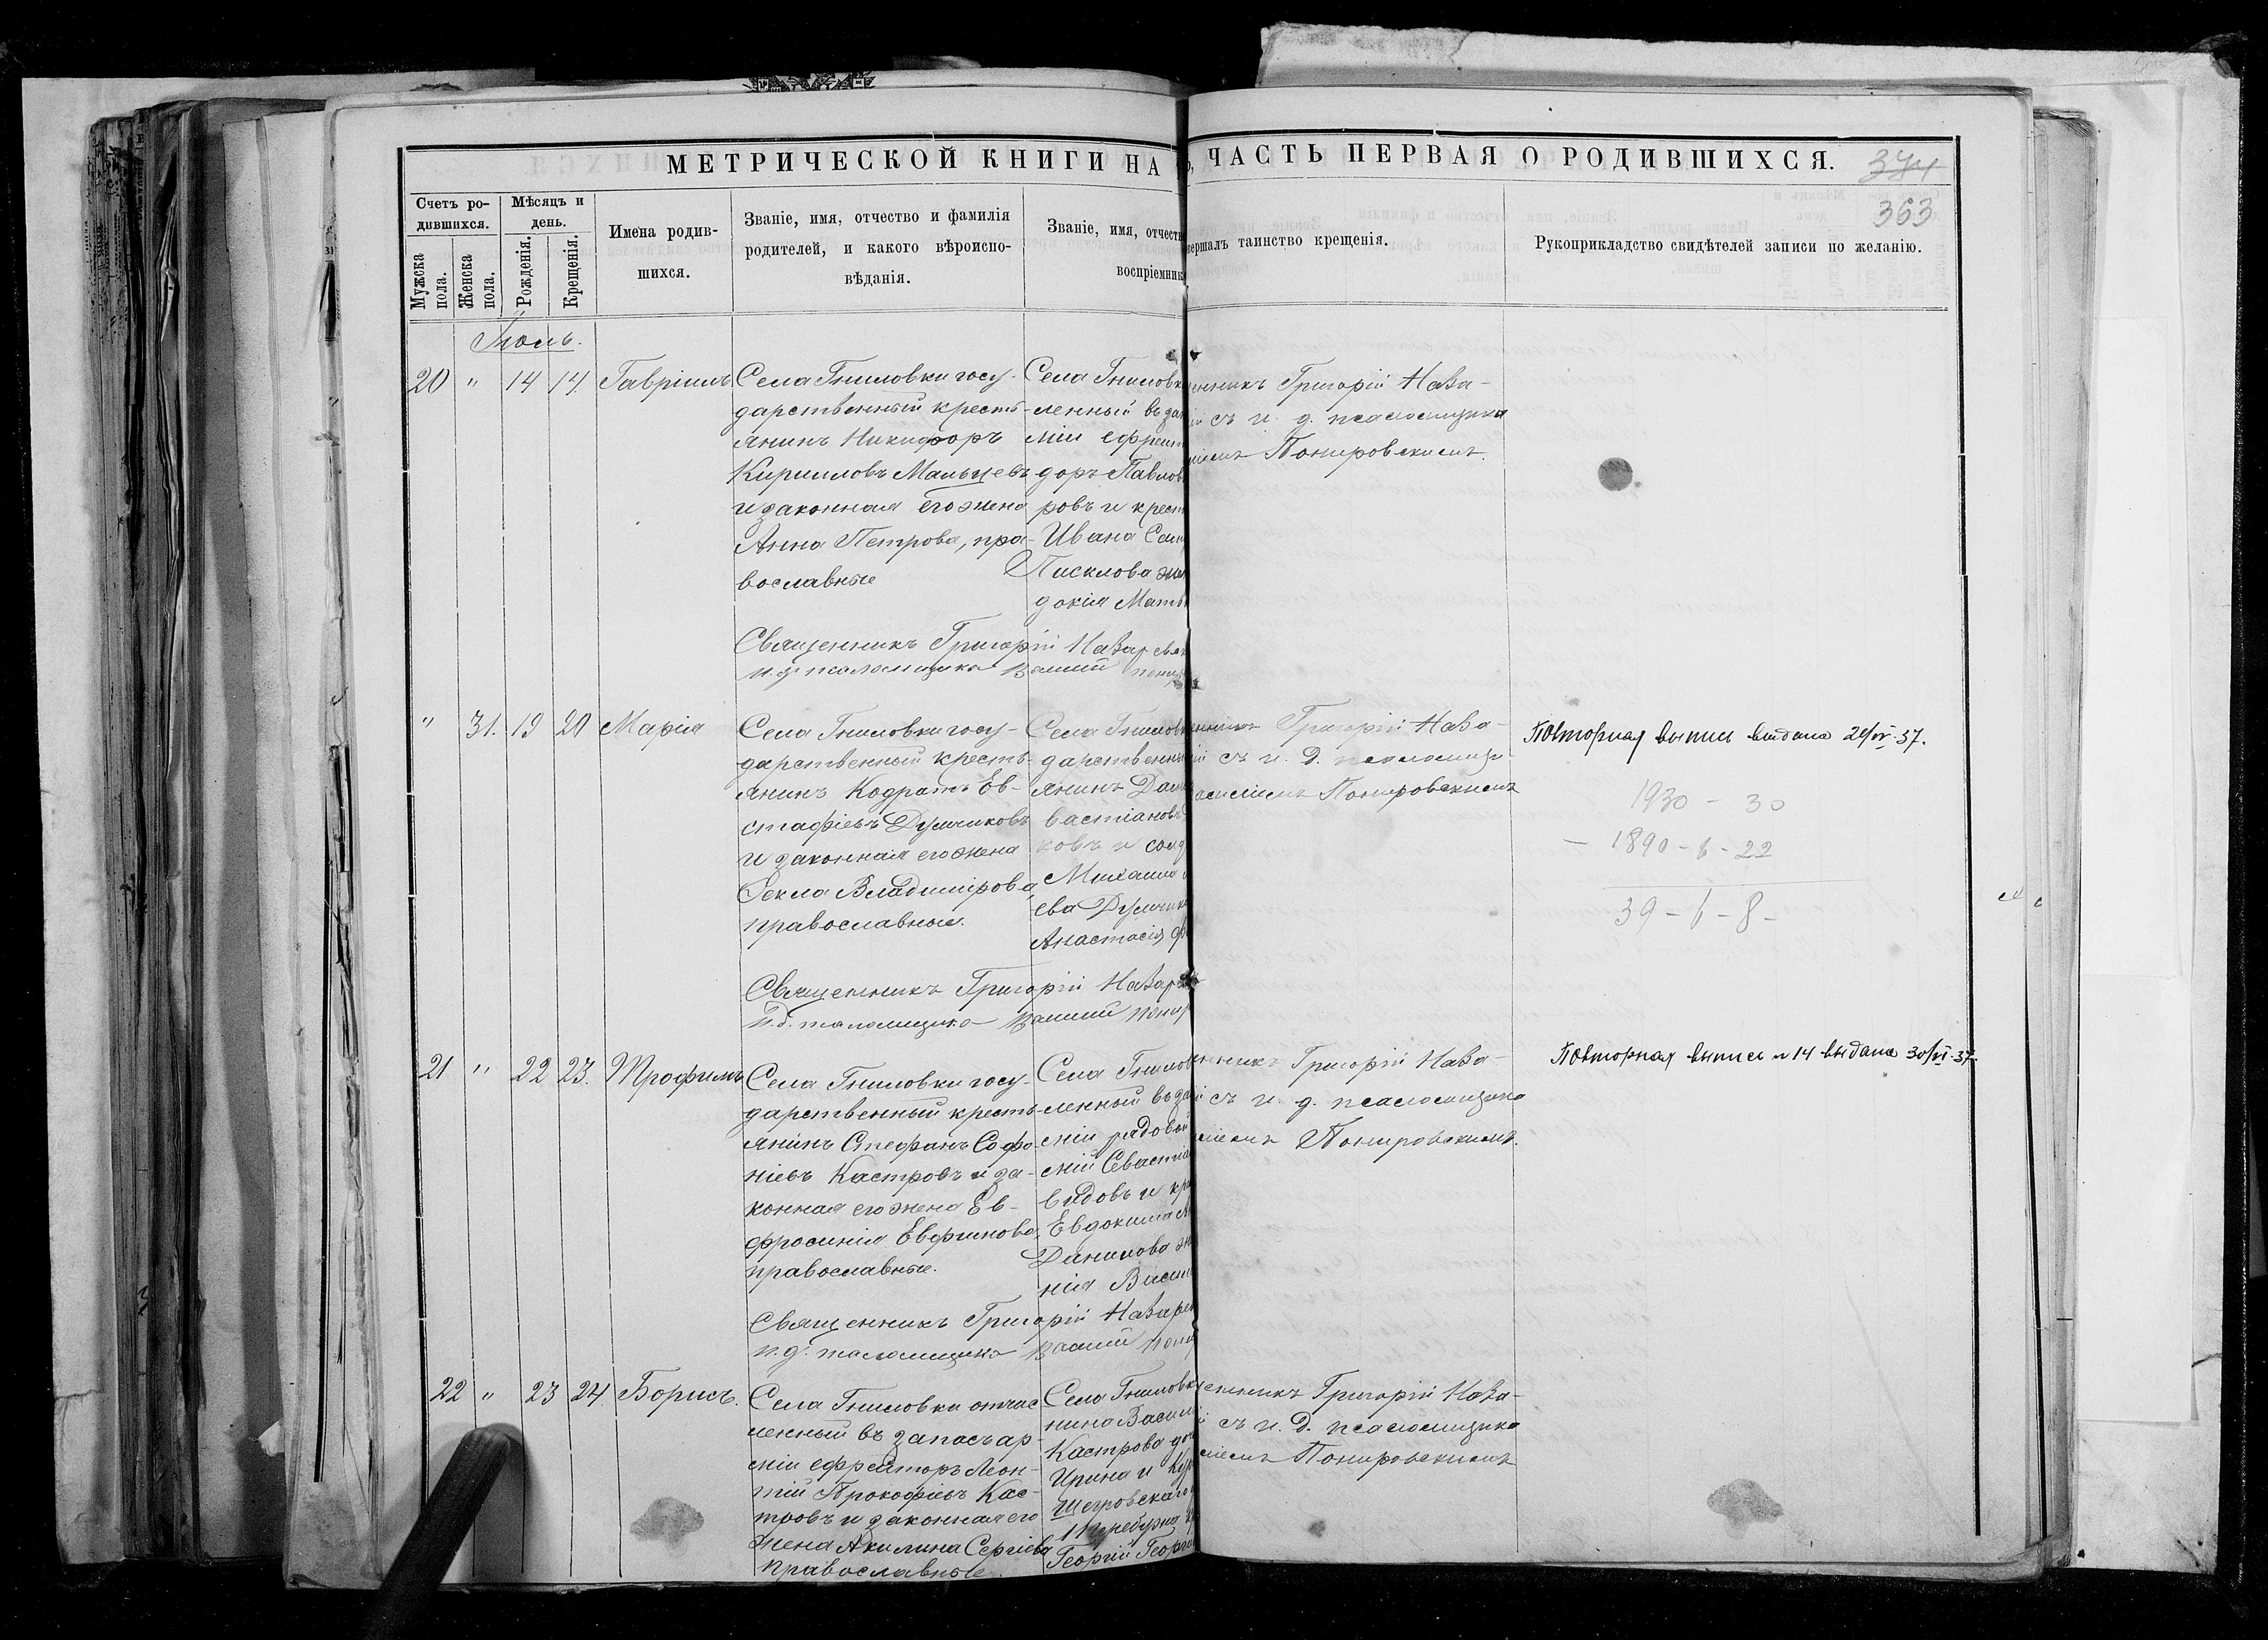 МЕТРИЧЕСКОЙ КНИГИ НА
ЧАСТЬ ПЕРВАЯ О РОДИВШИХСЯ.
374
363
Счетъ ро-
дившихся.
Мужска
пола.
Женска
пола.
Мѣсяцъ и
день.
Рожденія.
Крещенія.
Имена родив-
шихся.
Званіе, имя, отчество и фамилія
родителей, и какого вѣроиспо-
вѣданія.
Званіе, имя, отчеств
воспріемник
вершалъ таинство крещенія.
Рукоприкладство свидѣтелей записи по желанію.
Іюль.
20 " 14 14. Гавріилъ
Села Гниловки госу-
дарственный кресть-
янинъ Никифоръ
Кирилловъ Мальцевъ
и законная его жена
Анна Петрова, пра-
вославные
Села Гниловк
ленный въ зап
міи ефрейт
доръ Павлов
ровъ и крест
Ивана Сем
Писклова же
докія Матв
енникъ Григорій Наза-
ій съ и. д. псаломщика
ліемъ Поныровскимъ.
Священникъ Григорій Назаревск
и. д. псаломщика Василій Поныр
" 31. 19 20 Марія
Села Гниловки госу-
дарственный кресть-
янинъ Кодратъ Ев-
стафіевъ Думчиковъ
и законная его жена
Ѳекла Владимірова,
православные.
Села Гнилов
дарственны
янинъ Дам
вастіановъ
ковъ и солд
Михаила
ева Думчик
Анастасія Ѳе
енникъ Григорій Наза-
ій съ и. д. псаломщи-
асиліемъ Поныровскимъ
Повторная выпись выдана 20/IV-37.
1930 - 30
- 1890 - 6 - 22
39 - 6 - 8 -
Священникъ Григорій Назарев
И. д. псаломщика Василій Поныр
21 " 22 23. Трофимъ
Села Гниловки госу-
дарственный кресть-
янинъ Стефанъ Софо-
ніевъ Кастровъ и за-
конная его жена Ев-
фросинія Евфимова,
православные.
Села Гнилов
ленный въ зап
міи рядовой
сній Севастіа
видовъ и кре
Евдокима М
Данилова же
нія Васил
енникъ Григорій Наза-
й съ и. д. псаломщика
ліемъ Поныровскимъ.
Повторная выпись №14 выдана 30/VI-37.
Священникъ Григорій Назарев
и. д. псаломщика Василій Поныр
22 " 23 24. Борисъ.
Села Гниловки отчис
ленный въ запасъ ар-
міи ефрейторъ Леон-
тій Прокофіевъ Кас-
тровъ и законная его
жена Акилина Сергіева
православные.
Села Гниловк
нина Васил
Кастрова до
Ирина и Кур
Щигровскаго
Георгій Георг
енникъ Григорій Наза-
й съ и. д. псаломщика
ліемъ Поныровскимъ